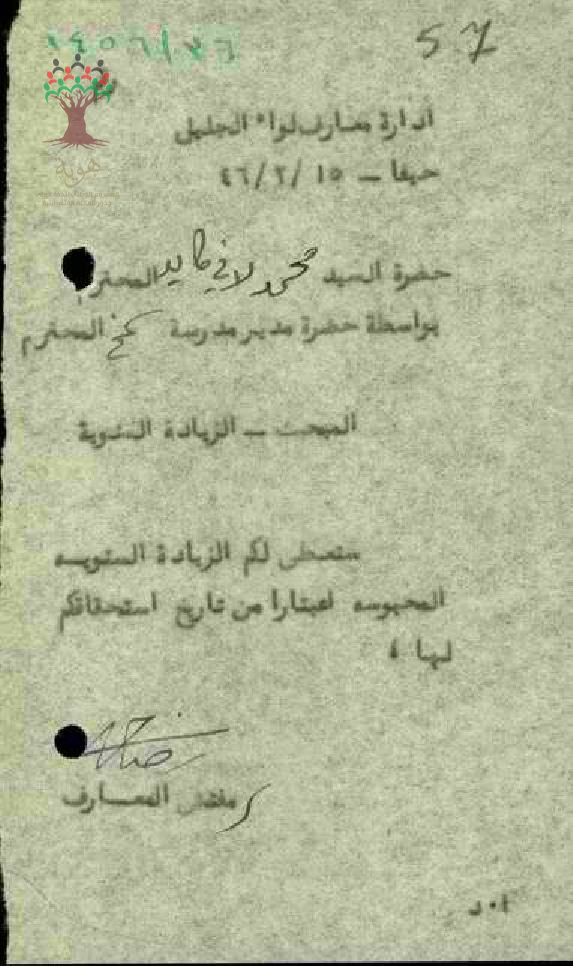 57
١٤٥٦/٣٦
هوية
ادارة معارف لواء الجليل
حيفا – ١٥ /٢ /٤٦
حضرة السيد محمد لافي كايد المحترم
بواسطة حضرة مدير مدرسة المحترم
المبحث – الزيادة السنوية
ستعطى لكم الزيادة السنويه
المحبوسه اعتبارا من تاريخ استحقاقكم
لها ،
مفتش المعارف
ا٠د